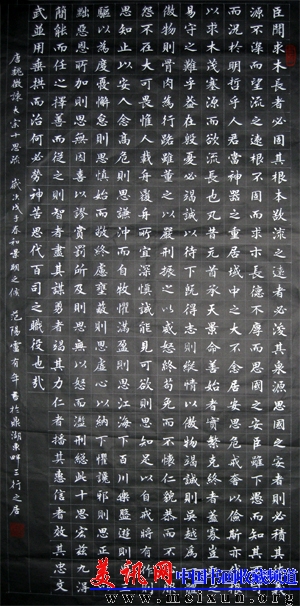 臣聞求木長者必固其根本欲流之遠者必浚其泉源思國之安者必積其德義
源不深而望流之遠根不固而求木長德不厚而思國之安臣雖下愚而知其不可
而況於明哲乎人君當神器之重居域中之大不念居安思危戒奢以儉斯亦伐根
以求木茂塞源而欲流長也凡昔元首承天景命善始者實繁克終者蓋寡豈取之
易守之難乎蓋在殷憂必竭誠以待下既得志則縱情以傲物竭誠則吳越為一體
傲物則骨肉為行路雖董之以嚴刑振之以威怒終苟免而不懷仁貌恭而不心服
怨不在大可畏惟人載舟覆舟所宜深慎誠能見可欲則思知足以自戒將有作則
思知止以安人念高危則思謙沖而自牧懼滿盈則思江海下百川樂盤遊則思三驅
以為度憂懈怠則思慎始而敬終慮壅蔽則思虛心以納下懼讒邪則思正身以
黜惡恩所加則思無因喜以謬賞罰所及則思無以怒而濫刑總此十思宏茲九德
簡能而任之擇善而從之則智者盡其謀勇者竭其力仁者播其惠信者效其忠文
武並用垂拱而治何必勞神苦思代百司之職役也哉
唐魏徵諫太宗十思疏 歲次戊子春和景明之候 范陽盧有年書於鼎湖東畔三行之居
美讯网 中国书画收藏频道
www.meixun.org